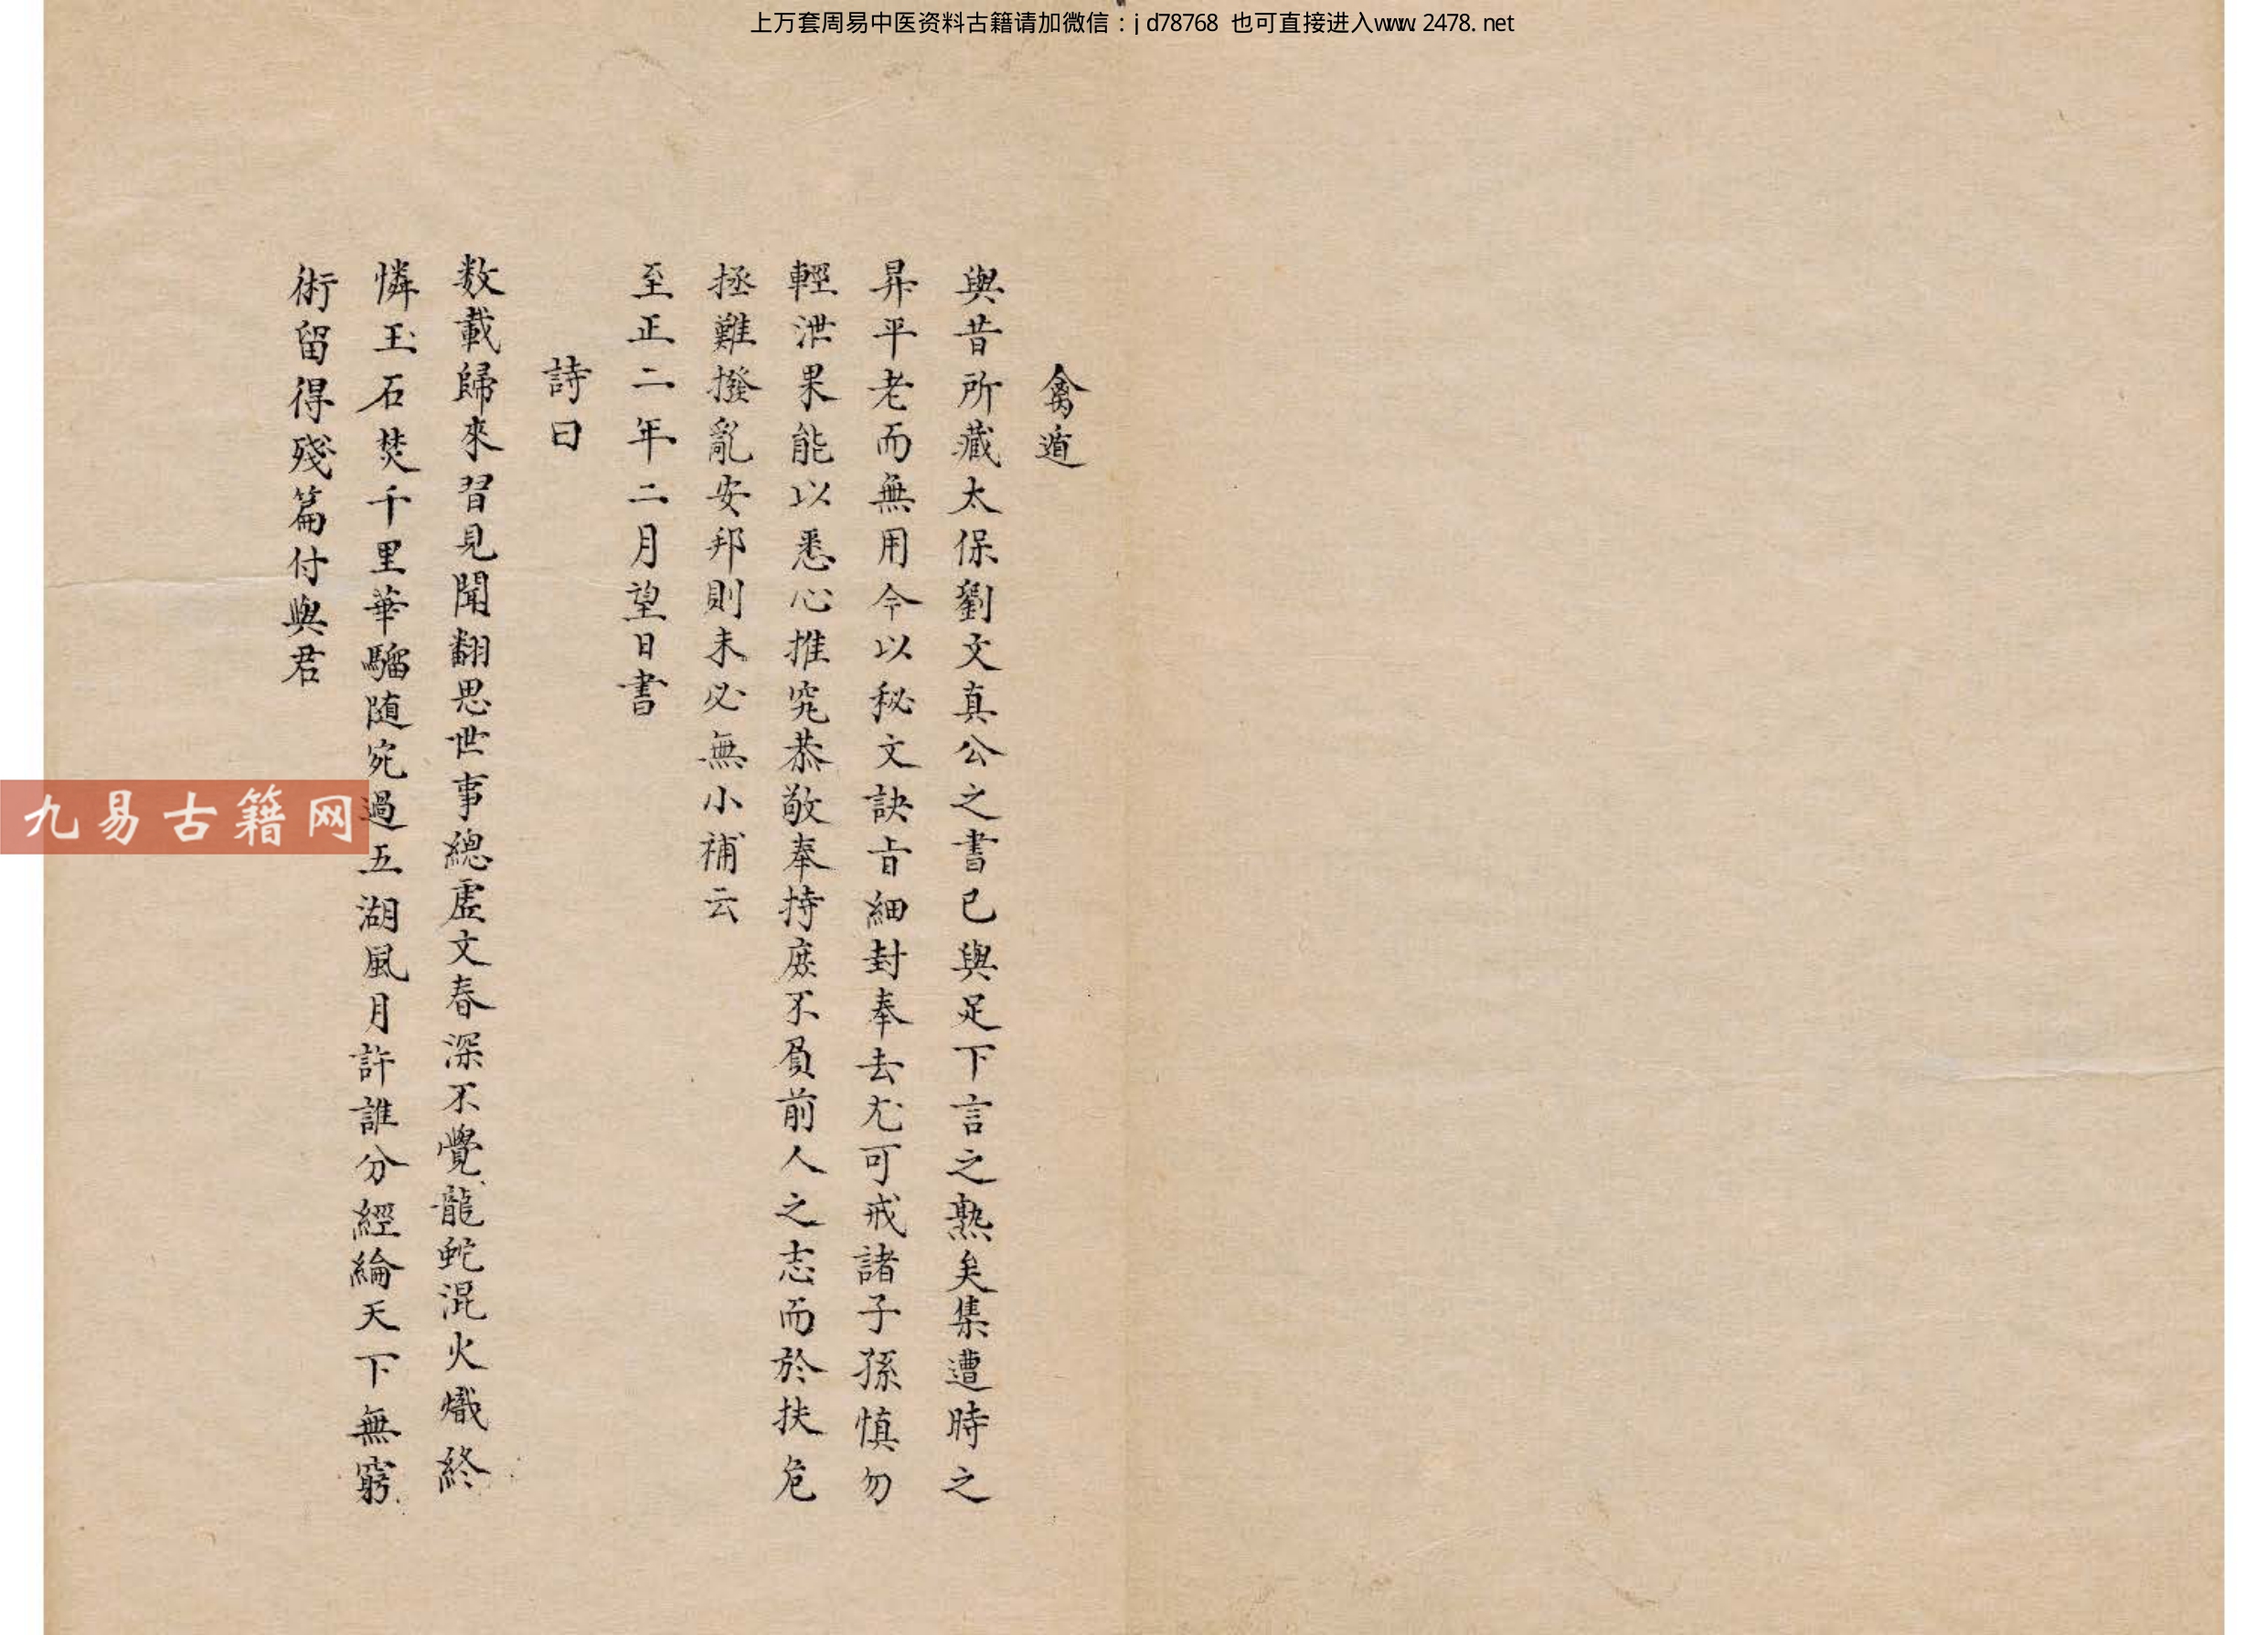 上万套周易中医资料古籍请加微信：jd78768 也可直接进入www.2478.net
禽遁
與昔所藏太保劉文真公之書已與足下言之熟矣集遭時之
昇平老而無用今以秘文訣旨細封奉去尤可戒諸子孫慎勿
輕泄果能以悉心推究恭敬奉持庶不負前人之志而於扶危
拯難撥亂安邦則未必無小補云
至正二年二月望日書
詩曰
数載歸來習見聞翻思世事總虛文春深不覺龍蛇混火熾終
憐玉石焚千里華騮随宛過五湖風月許誰分經綸天下無窮
術留得殘篇付與君
九易古籍网